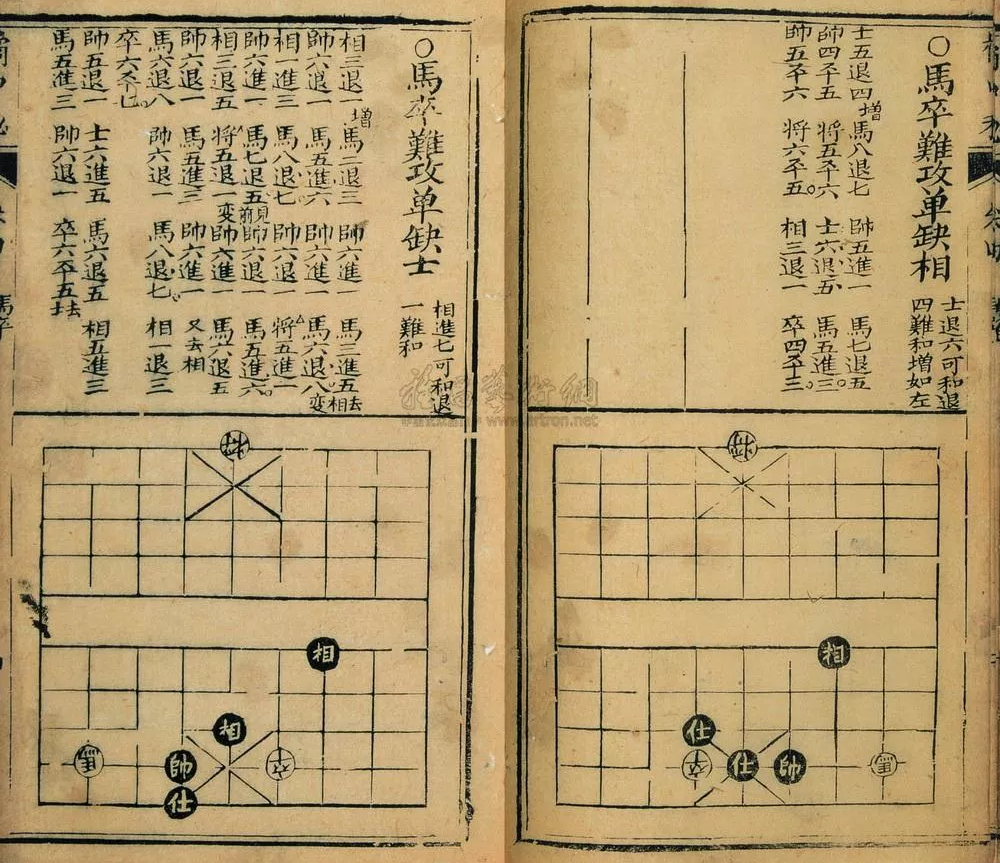 ○馬卒難攻单缺相
士退六可和退
四難和增如左
士五退四增馬八退七 帥五進一 馬七退五
帥四平五 将五平六 士六退五 馬五進三
帥五平六 将六平五 相三退一 卒四平三
○馬卒難攻单缺士
相進七可和退
一難和
相三退一增馬二退三 帥六進一 馬三進五去相
帥六退一 馬五進六 帥六進一 馬六退八变
相一進三 馬八進七 帥六進一 将五進一
帥六進一 馬七退五見前 帥六退一 馬五進六
相三退五 将五退一变 帥六進一 馬六退五
帥六退一 馬五進三 帥六進一 又去相
馬六退八 帥六退一 馬八退七 相一退三
卒六平七
帥五退一 士六進五 馬六退五 相五進三
馬五進三 帥六退一 卒六平五去士
馬卒
将
相
相
馬
帥
卒
仕
将
相
仕
卒
仕
帥
馬
www.artron.net